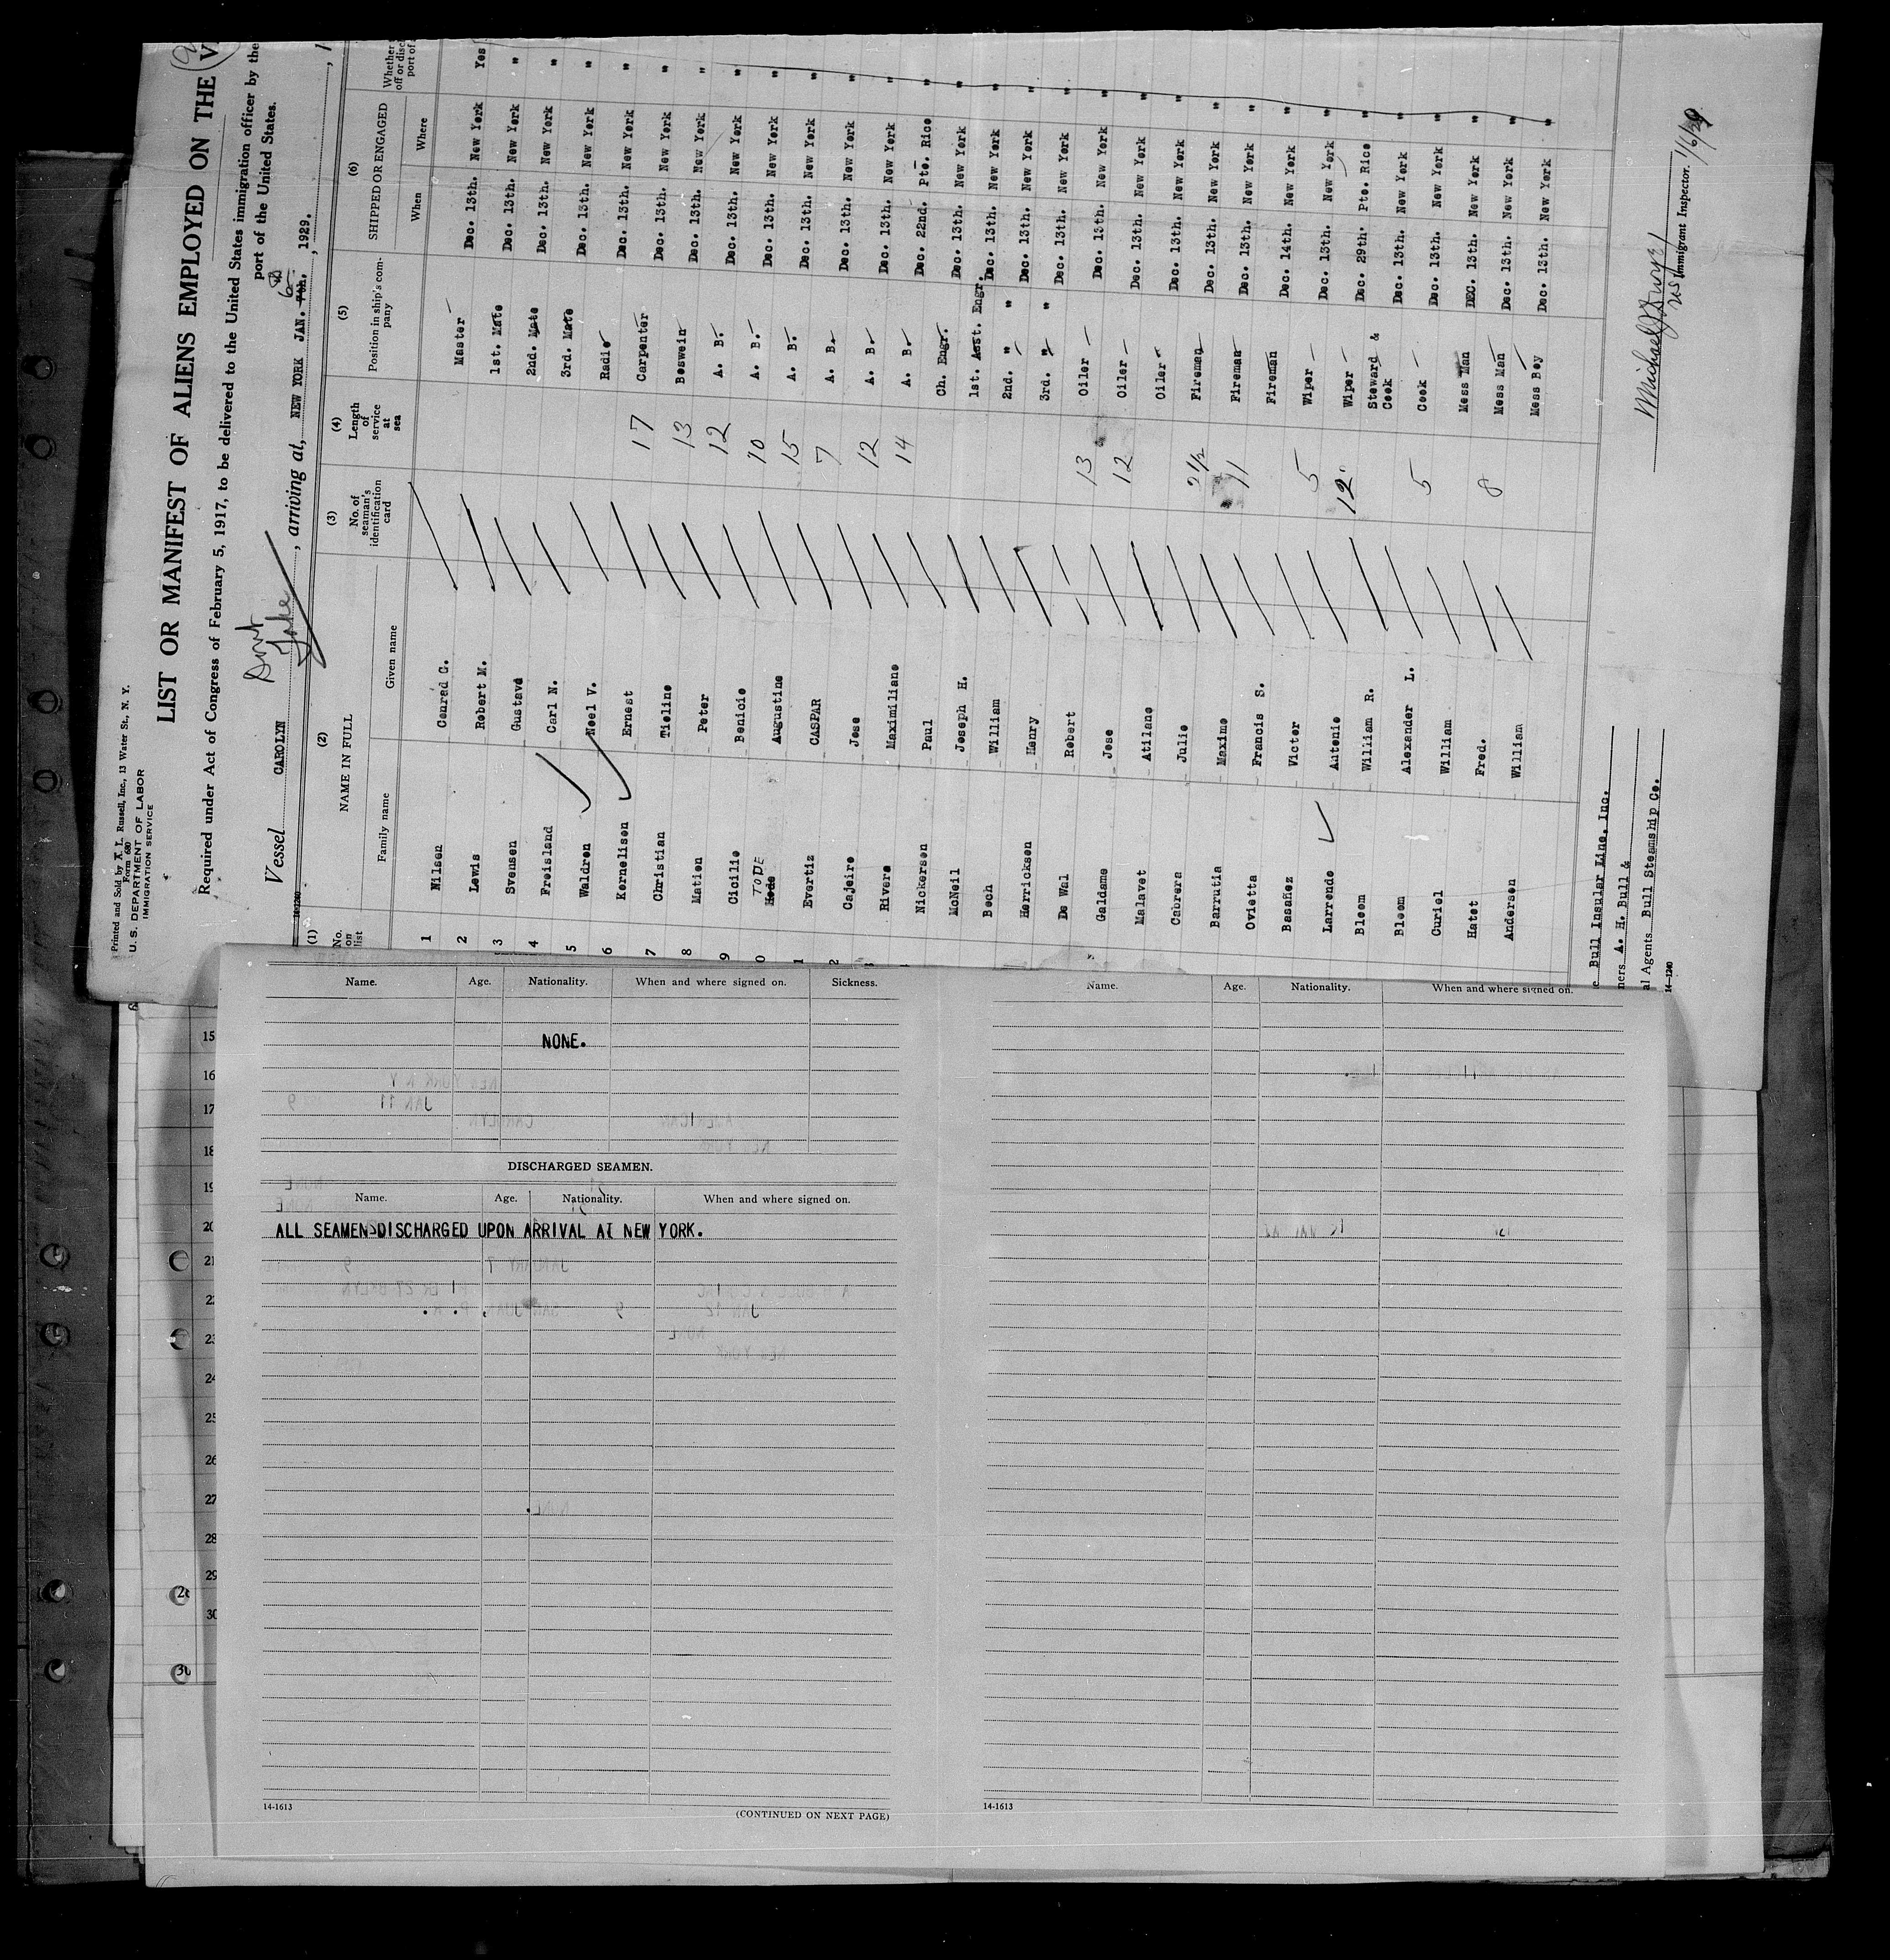 Printed and Sold by A. L. Russell, Inc., 13 Water St., N. Y.
Form 680
U. S. DEPARTMENT OF LABOR
IMMIGRATION SERVICE
LIST OR MANIFEST OF ALIENS EMPLOYED ON THE V
Required under Act of Congress of February 5, 1917, to be delivered to the United States immigration officer by the
port of the United States.
Vessel CAROLYN, arriving at, NEW YORK JAN. 7th. 6th, 1929.
(1) (2) (3) (4) (5) (6)
No. on list NAME IN FULL No. of seaman's identification card Length of service at sea Position in ship's company SHIPPED OR ENGAGED
Family name Given name When Where
1 Nilsen Conrad C. Master Dec. 13th. New York Yes
2 Lewis Robert M. 1st. Mate Dec. 13th. New York "
3 Svensen Gustave 2nd. Mate Dec. 13th. New York "
4 Freisland Carl N. 3rd. Mate Dec. 13th. New York "
5 Waldren Neel V. Radio Dec. 13th. New York "
6 Kornelisen Ernest 17 Carpenter Dec. 13th. New York "
7 Christian Tieline 13 Boswein Dec. 13th. New York "
8 Matien Peter 12 A. B. Dec. 13th. New York "
9 Cicilio Benicio 10 A. B. Dec. 13th. New York "
0 TODE Augustine 15 A. B. Dec. 13th. New York "
1 Evertiz CASPAR 7 A. B. Dec. 13th. New York "
2 Cajeire Jose 12 A. B. Dec. 13th. New York "
Rivera Maximiliane 14 A. B. Dec. 22nd. Pto. Rico "
Nickersen Paul Ch. Engr. Dec. 13th. New York "
McNeil Joseph H. 1st. Asst. Engr. Dec. 13th. New York "
Bech William 2nd. " " Dec. 13th. New York "
Herricksen Henry 3rd. " " Dec. 13th. New York "
De Wal Robert 13 Oiler Dec. 13th. New York "
Galdame Jose 12 Oiler Dec. 13th. New York "
Malavet Atilane Oiler Dec. 13th. New York "
Cabrera Julie 2 1/2 Fireman Dec. 13th. New York "
Barrutia Maxime 11 Fireman Dec. 13th. New York "
Ovietta Francis S. Fireman Dec. 14th. New York "
Basañez Victor 5 Wiper Dec. 13th. New York "
Larrende Antonie 12 Wiper Dec. 29th. Pto. Rico "
Bloem William R. Steward & Cook Dec. 13th. New York "
Bleem Alexander L. 5 Cook Dec. 13th. New York "
Curiel William Mess Man DEC. 13th. New York "
Hatet Fred. 8 Mess Man Dec. 13th. New York "
Andersen William Mess Boy Dec. 13th. New York "
Bull Insular Line, Inc.
ners A. H. Bull &
al Agents Bull Steamship Co.
14-1240
Immigrant Inspector. 1/6/29
15
16
17
18
19
20
21
22
23
24
25
26
27
28
29
30
Name. Age. Nationality. When and where signed on. Sickness.
NONE.
DISCHARGED SEAMEN.
Name. Age. Nationality. When and where signed on.
ALL SEAMEN DISCHARGED UPON ARRIVAL AT NEW YORK.
14-1613
(CONTINUED ON NEXT PAGE)
Name. Age. Nationality. When and where signed on.
14-1613